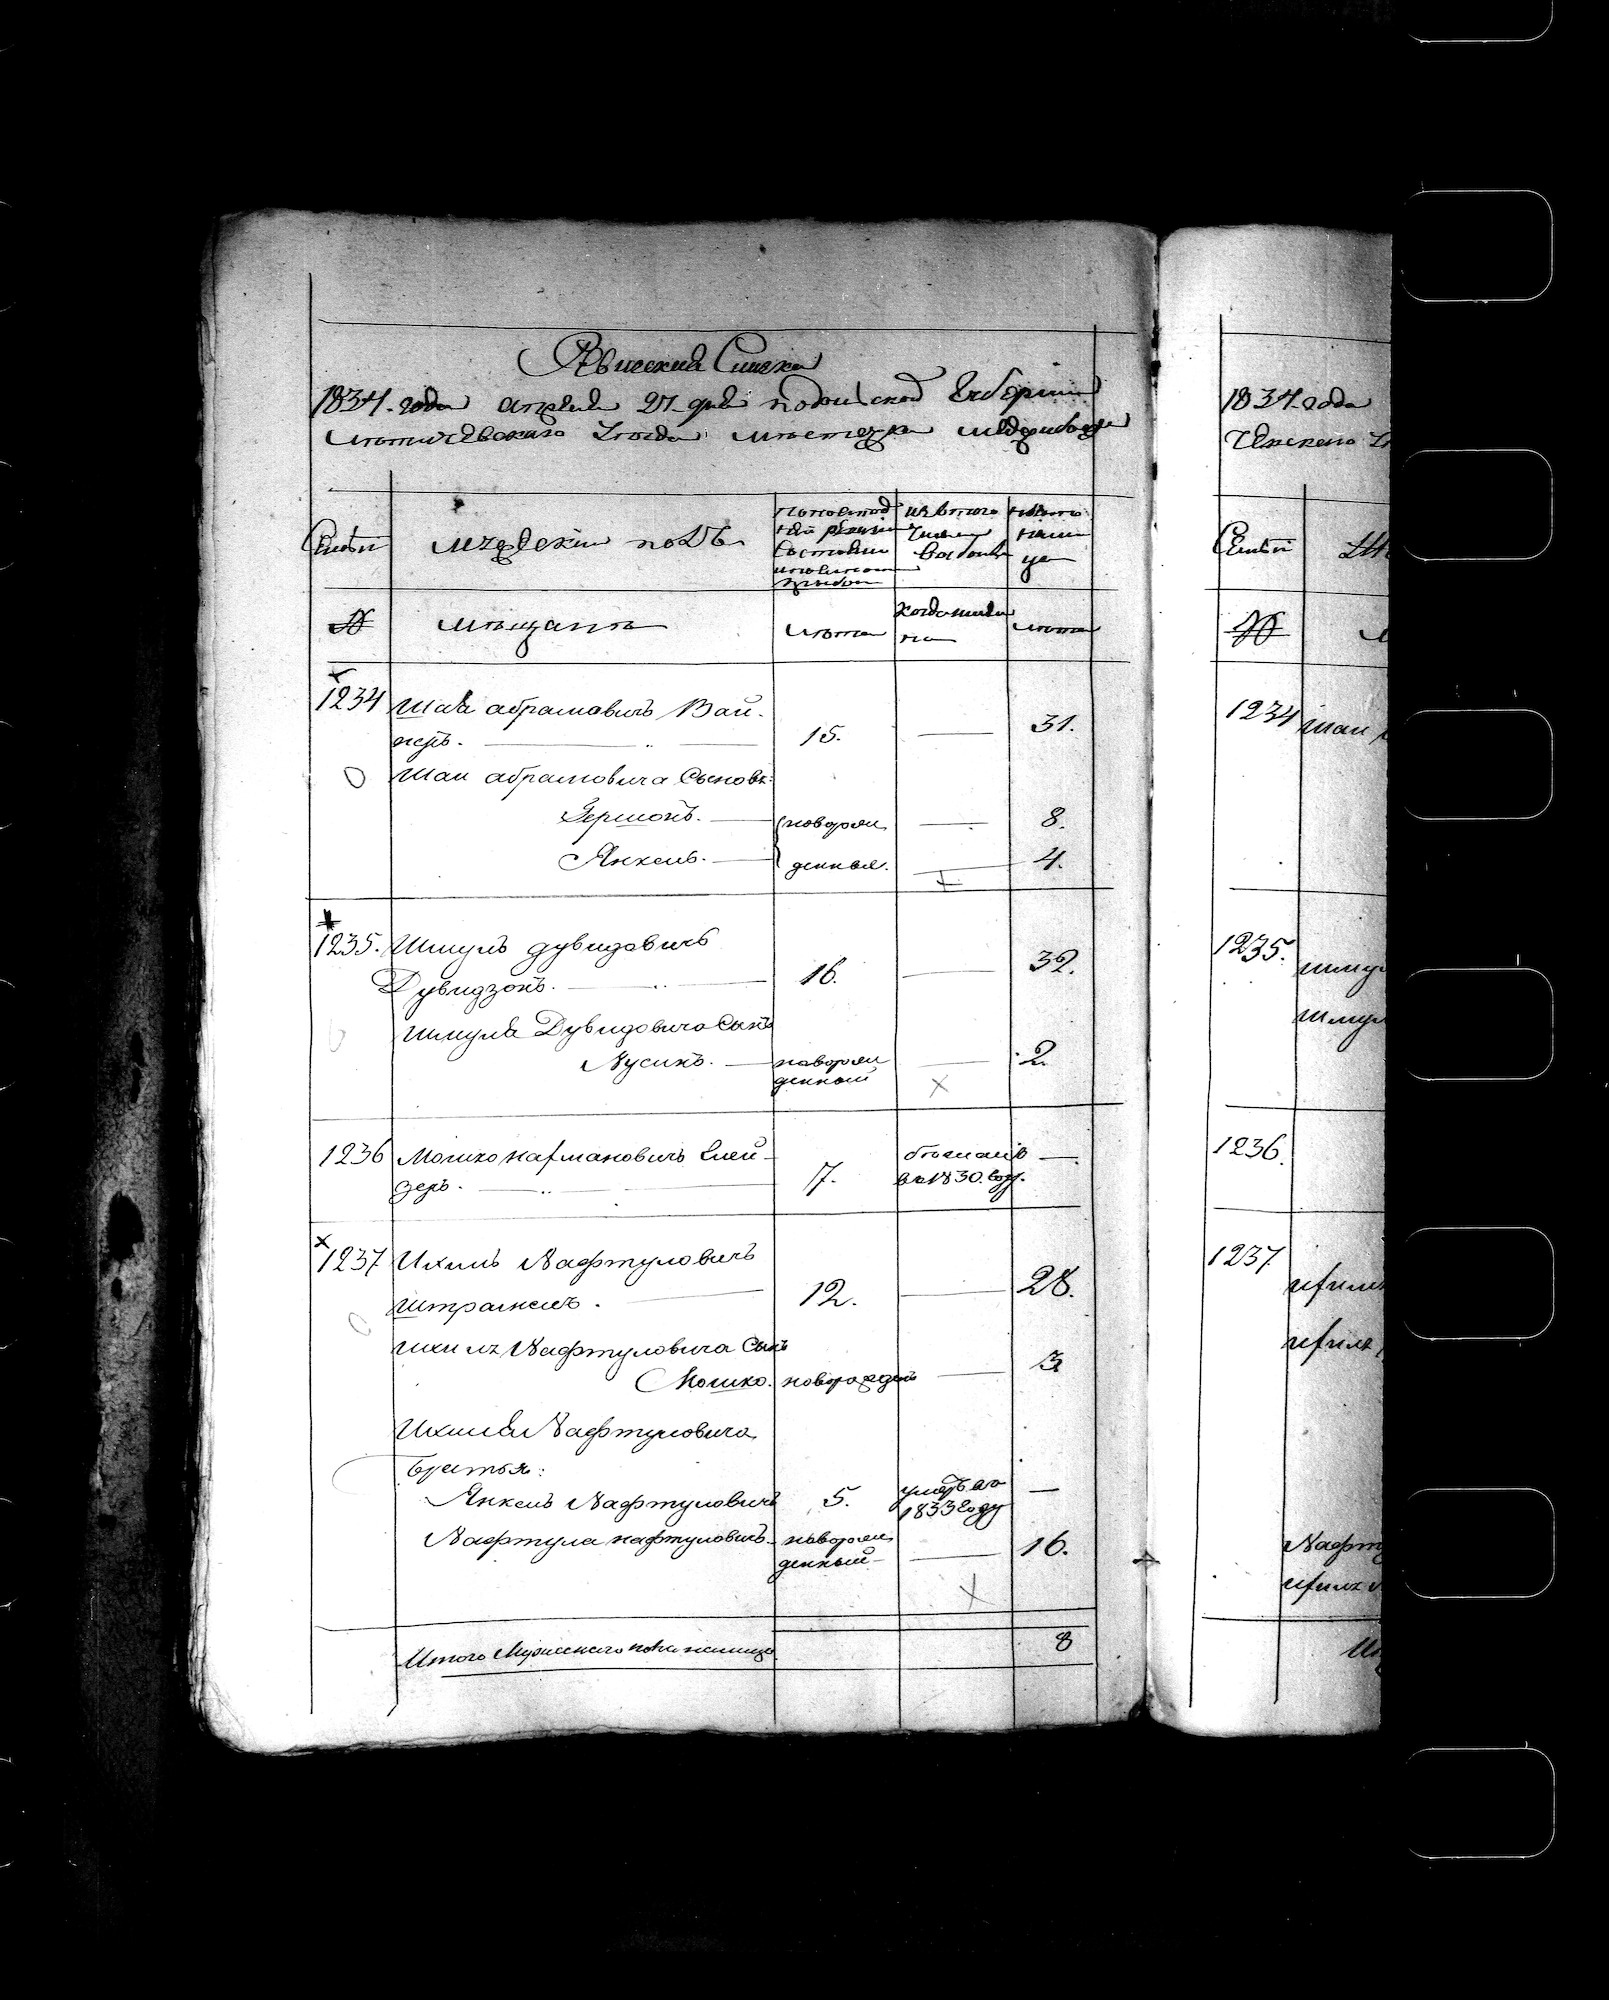 Ревиский Списка
1834. года апреля 27 дня Подольской Губернии
Летичевского уезда местечка Меджибожа
Семьи
мужеский полъ
по последней ревизии состояло и после того прибыло
Из того числа выбыло
Ныне на лицо
№
мещане
лета
когда именно
лета
1234
Шая абрамовичъ Вай-
неръ.
15.
31.
Шаи абрамовича Сыновья:
Гершонъ.
новорож
8.
Янкель.
денные.
4.
1235.
Шмуль дувидовичъ
Дувидзонъ.
16.
32.
Шмуля Дувидовича Сынъ
Нусинъ.
новорож
2.
денный
1236
Мошко нахмановичъ Глей-
зеръ.
7.
бежалъ
въ 1830. году.
1237
Ихиль Нафтуловичъ
Штрамель.
12.
28.
Ихиля Нафтуловича Сынъ
Мошко.
новорожденъ
3
Ихиля Нафтуловича
братья:
Янкель Нафтуловичъ
5.
умеръ въ
1833 Году
Нафтула нафтуловичъ
новорож
16.
денный
Итого Мужескаго пола на лицо
8
1834 года
Семьи
№
1234
Шаи
1235.
Шмуля
1236.
1237
Ихиля